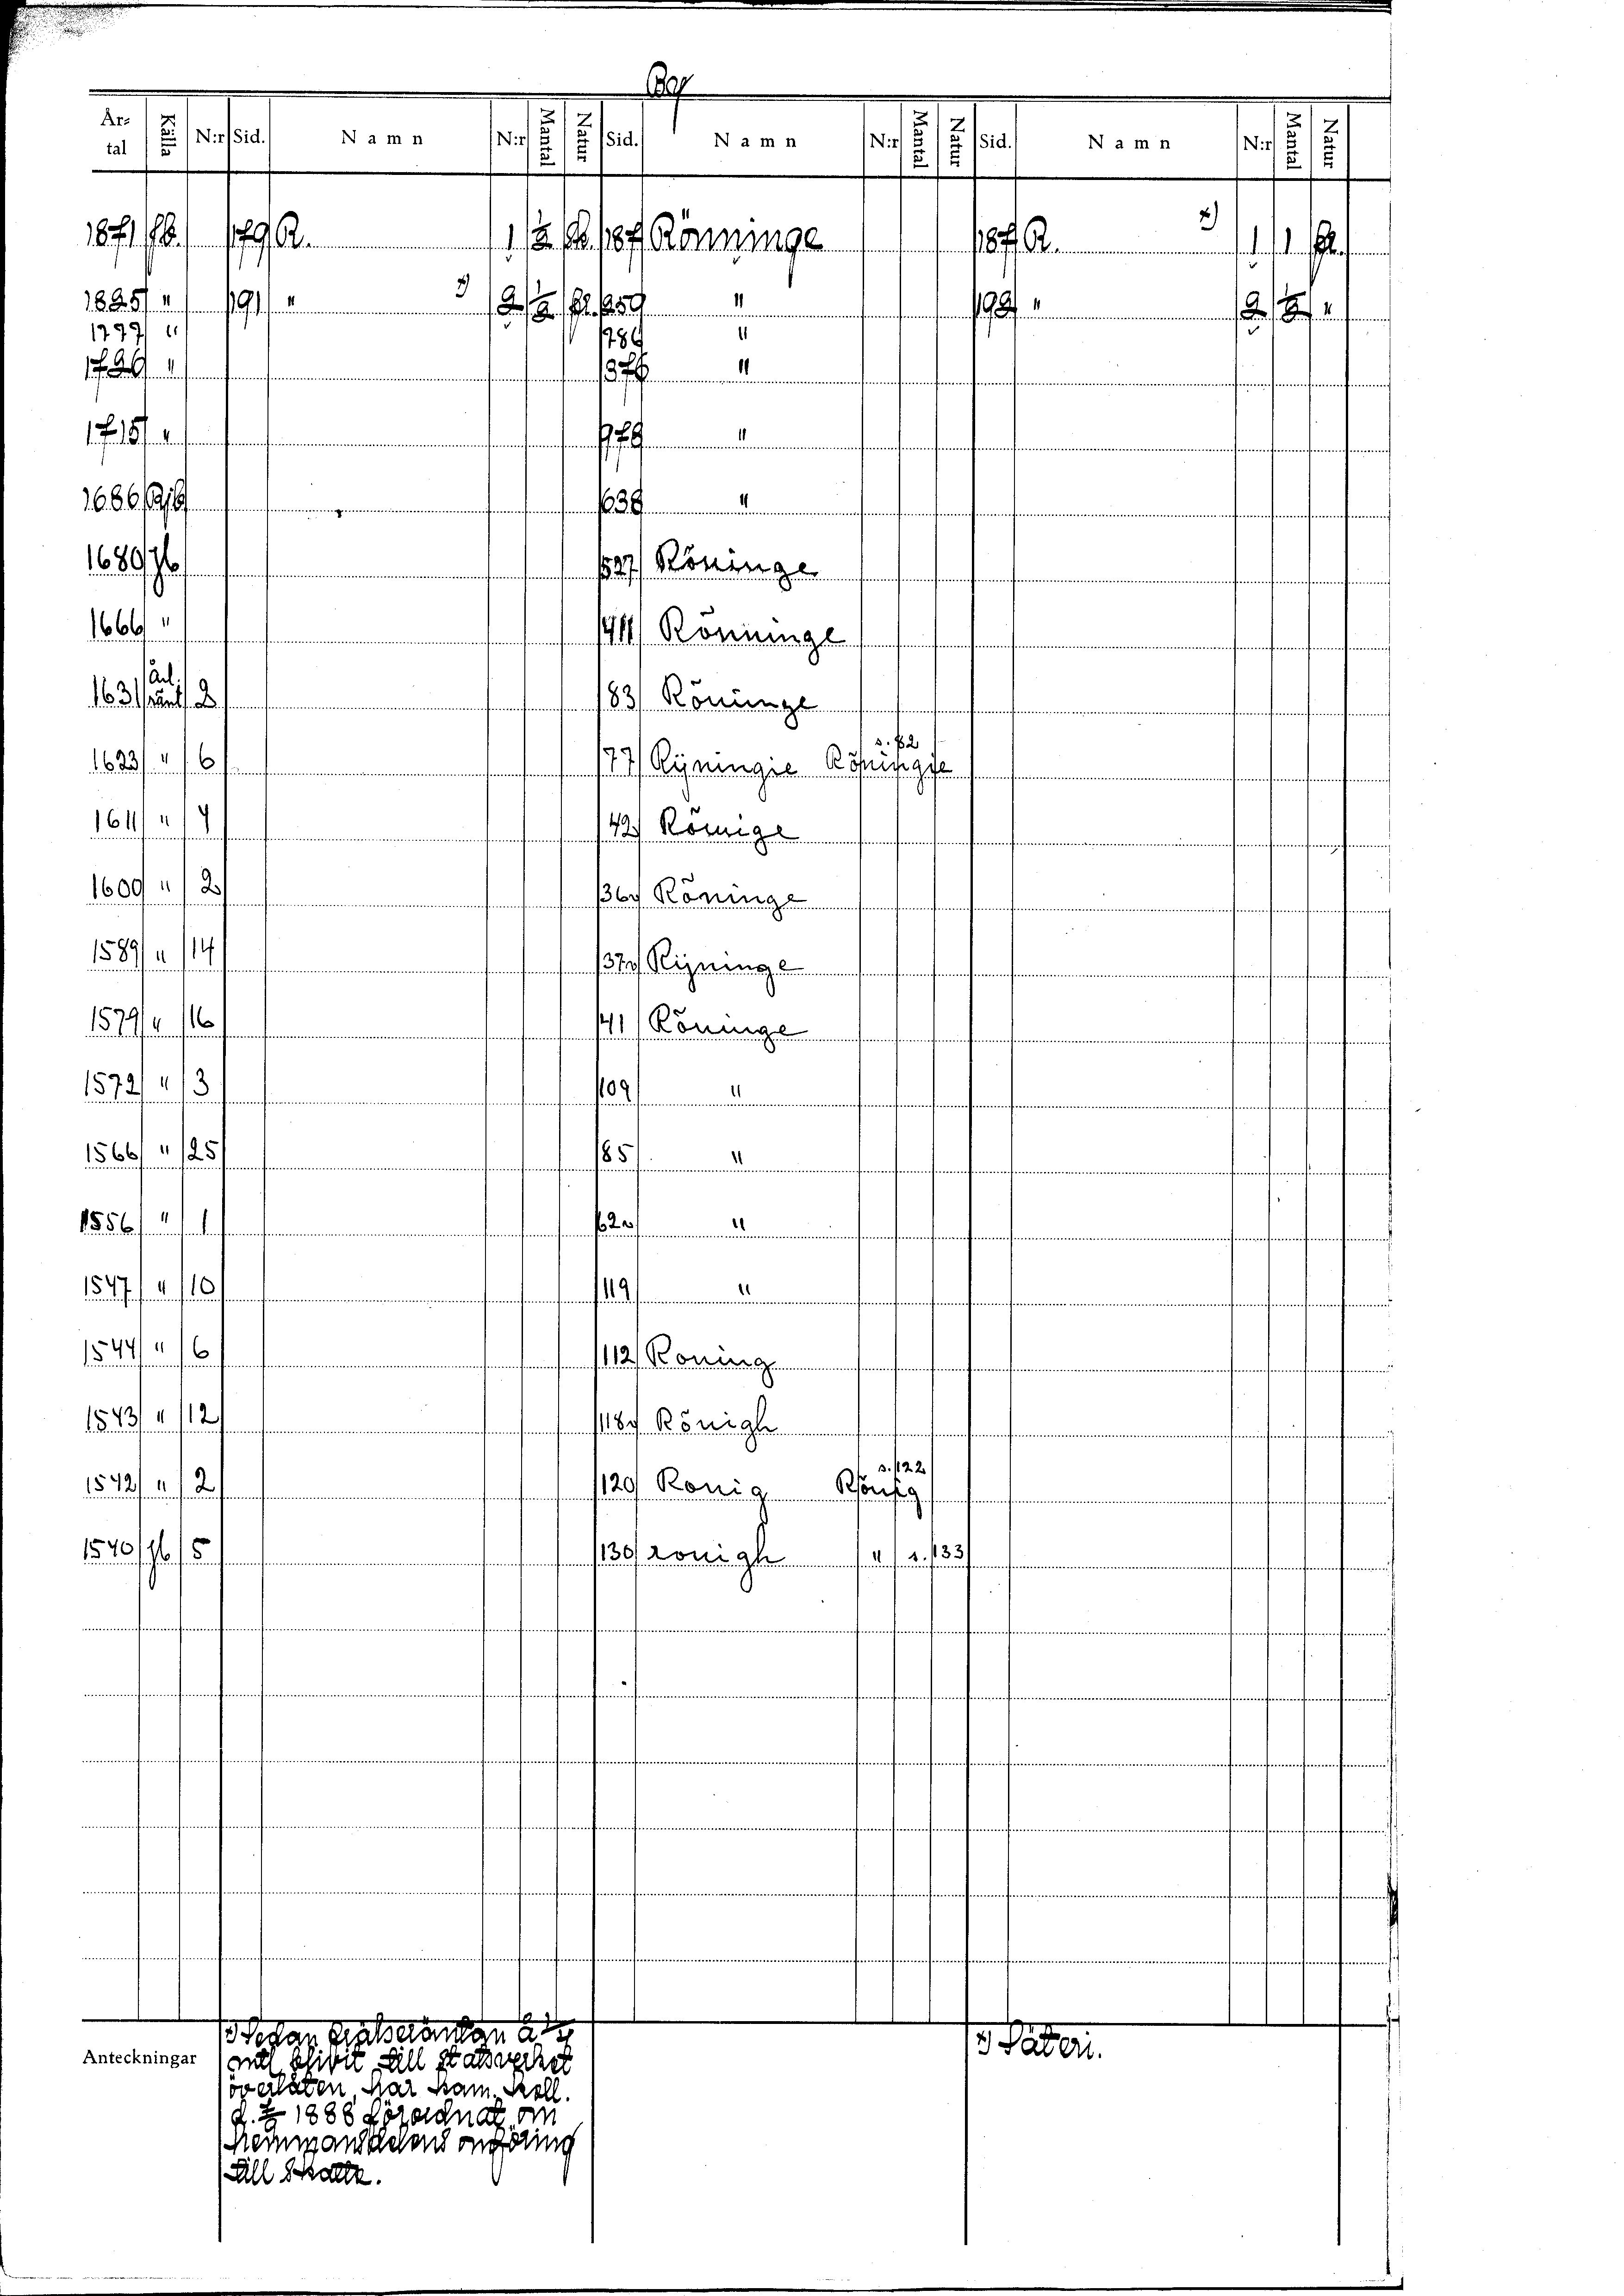 By
År-tal Källa N:r Sid. Namn N:r Mantal Natur Sid. Namn N:r Mantal Natur Sid. Namn N:r Mantal Natur
1871 Jb. 179 R. 1 1/2 Sk. 187 Rönninge 187 R. x) 1 1 fr.
1825 " 191 " x) 2 1/2 fr. 259 " 192 " 2 1/2 "
1777 " 786 "
1726 " 376 "
1715 " 978 "
1686 Rjb 638 "
1680 Jb 527 Röninge
1666 " 411 Rönninge
1631 Årl. ränt 2 83 Röninge
1623 " 6 77 Rÿningie Röningie s. 82
1611 " 4 42v Rönige
1600 " 2 36v Röninge
1589 " 14 37v Rÿninge
1579 " 16 41 Röninge
1572 " 3 109 "
1566 " 25 85 "
1556 " 1 62v "
1547 " 10 119 "
1544 " 6 112 Roning
1543 " 12 118v Rönigh
1542 " 2 120 Ronig Rönig s. 122
1540 Jb 5 130 ronigh " s. 133
Anteckningar
x) Sedan frälseräntan å 1/4
mtl blivit till statsverket
överlåten, har Kam. Koll.
d. 1888 förordnat om
hemmansdelens omföring
till skatte.
x) Säteri.